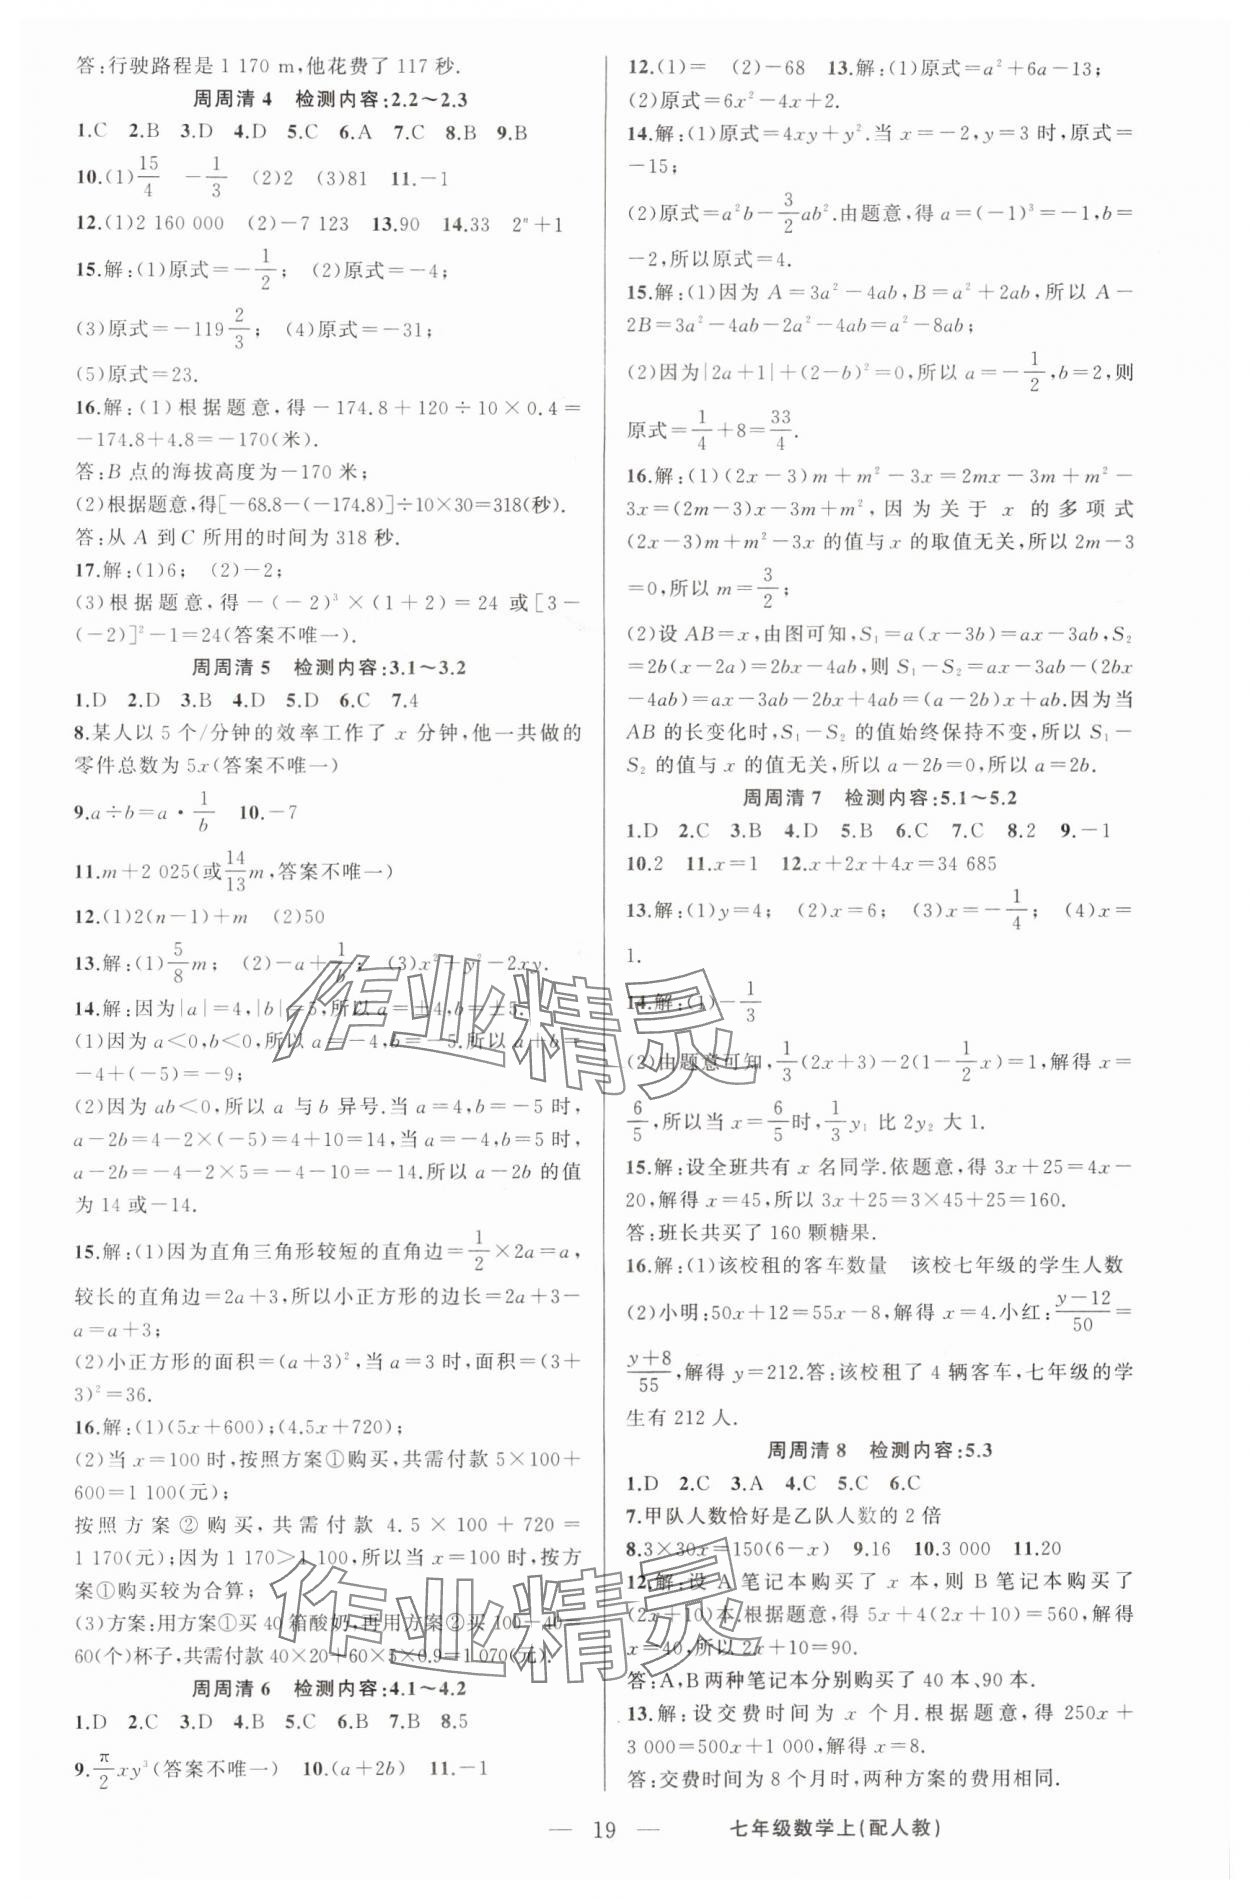 答:行驶路程是 1 170 m,他花费了 117 秒.
周周清 4 检测内容:2.2～2.3
1.C 2.B 3.D 4.D 5.C 6.A 7.C 8.B 9.B
10.(1)15/4 -1/3 (2)2 (3)81 11.-1
12.(1)2 160 000 (2)-7 123 13.90 14.33 2ⁿ+1
15.解:(1)原式=-1/2; (2)原式=-4;
(3)原式=-119 2/3; (4)原式=-31;
(5)原式=23.
16.解:(1)根据题意,得-174.8+120÷10×0.4=
-174.8+4.8=-170(米).
答:B 点的海拔高度为-170 米;
(2)根据题意,得[-68.8-(-174.8)]÷10×30=318(秒).
答:从 A 到 C 所用的时间为 318 秒.
17.解:(1)6; (2)-2;
(3)根据题意,得-(-2)³×(1+2)=24 或[3-
(-2)]²-1=24(答案不唯一).
周周清 5 检测内容:3.1～3.2
1.D 2.D 3.B 4.D 5.D 6.C 7.4
8.某人以 5 个/分钟的效率工作了 x 分钟,他一共做的
零件总数为 5x(答案不唯一)
9.a÷b=a·1/b 10.-7
11.m+2 025(或14/13m,答案不唯一)
12.(1)2(n-1)+m (2)50
13.解:(1)5/8m; (2)-a+1/b; (3)x²+y²-2xy.
14.解:因为|a|=4,|b|=5,所以 a=±4,b=±5.
(1)因为 a<0,b<0,所以 a=-4,b=-5.所以 a+b=
-4+(-5)=-9;
(2)因为 ab<0,所以 a 与 b 异号.当 a=4,b=-5 时,
a-2b=4-2×(-5)=4+10=14,当 a=-4,b=5 时,
a-2b=-4-2×5=-4-10=-14.所以 a-2b 的值
为 14 或-14.
15.解:(1)因为直角三角形较短的直角边=1/2×2a=a,
较长的直角边=2a+3,所以小正方形的边长=2a+3-
a=a+3;
(2)小正方形的面积=(a+3)²,当 a=3 时,面积=(3+
3)²=36.
16.解:(1)(5x+600);(4.5x+720);
(2)当 x=100 时,按照方案①购买,共需付款 5×100+
600=1 100(元);
按照方案②购买,共需付款 4.5×100+720=
1 170(元);因为 1 170>1 100,所以 x=100 时,按方
案①购买较为合算;
(3)方案:用方案①买 40 箱酸奶,再用方案②买 100-40=
60(个)杯子,共需付款 40×20+60×5×0.9=1 070(元).
周周清 6 检测内容:4.1～4.2
1.D 2.C 3.D 4.B 5.C 6.B 7.B 8.5
9.π/2xy³(答案不唯一) 10.(a+2b) 11.-1
12.(1)= (2)-68 13.解:(1)原式=a²+6a-13;
(2)原式=6x²-4x+2.
14.解:(1)原式=4xy+y².当 x=-2,y=3 时,原式=
-15;
(2)原式=a²b-3/2ab².由题意,得 a=(-1)³=-1,b=
-2,所以原式=4.
15.解:(1)因为 A=3a²-4ab,B=a²+2ab,所以 A-
2B=3a²-4ab-2a²-4ab=a²-8ab;
(2)因为|2a+1|+(2-b)²=0,所以 a=-1/2,b=2,则
原式=1/4+8=33/4.
16.解:(1)(2x-3)m+m²-3x=2mx-3m+m²-
3x=(2m-3)x-3m+m²,因为关于 x 的多项式
(2x-3)m+m²-3x 的值与 x 的取值无关,所以 2m-3
=0,所以 m=3/2;
(2)设 AB=x,由图可知,S₁=a(x-3b)=ax-3ab,S₂
=2b(x-2a)=2bx-4ab,则 S₁-S₂=ax-3ab-(2bx
-4ab)=ax-3ab-2bx+4ab=(a-2b)x+ab.因为当
AB 的长变化时,S₁-S₂ 的值始终保持不变,所以 S₁-
S₂ 的值与 x 的值无关,所以 a-2b=0,所以 a=2b.
周周清 7 检测内容:5.1～5.2
1.D 2.C 3.B 4.D 5.B 6.C 7.C 8.2 9.-1
10.2 11.x=1 12.x+2x+4x=34 685
13.解:(1)y=4; (2)x=6; (3)x=-1/4; (4)x=
1.
14.解:(1)-1/3
(2)由题意可知,1/3(2x+3)-2(1-1/2x)=1,解得 x=
6/5,所以当 x=6/5时,1/3y₁ 比 2y₂ 大 1.
15.解:设全班共有 x 名同学.依题意,得 3x+25=4x-
20,解得 x=45,所以 3x+25=3×45+25=160.
答:班长共买了 160 颗糖果.
16.解:(1)该校租的客车数量 该校七年级的学生人数
(2)小明:50x+12=55x-8,解得 x=4.小红:(y-12)/50=
(y+8)/55,解得 y=212.答:该校租了 4 辆客车,七年级的学
生有 212 人.
周周清 8 检测内容:5.3
1.D 2.C 3.A 4.C 5.C 6.C
7.甲队人数恰好是乙队人数的 2 倍
8.3×30x=150(6-x) 9.16 10.3 000 11.20
12.解:设 A 笔记本购买了 x 本,则 B 笔记本购买了
(2x+10)本.根据题意,得 5x+4(2x+10)=560,解得
x=40,所以 2x+10=90.
答:A,B 两种笔记本分别购买了 40 本、90 本.
13.解:设交费时间为 x 个月.根据题意,得 250x+
3 000=500x+1 000,解得 x=8.
答:交费时间为 8 个月时,两种方案的费用相同.
— 19 — 七年级数学上(配人教)
作业精灵
作业精灵